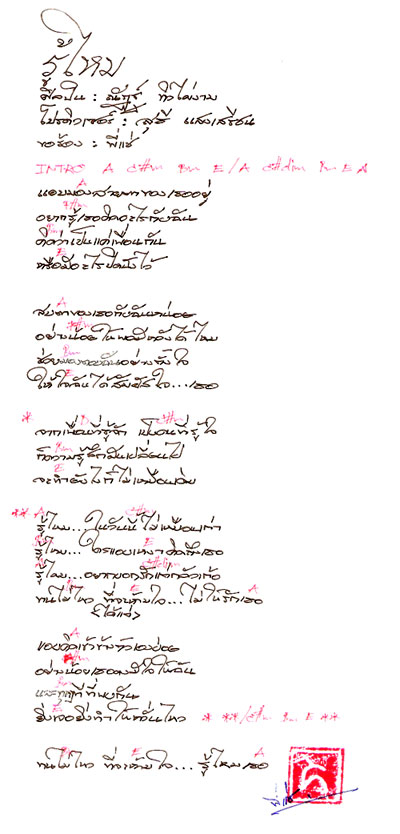 รู้ไหม
ศิลปิน : ณัฏฐ์ ทิวไผ่งาม
โปรดิวเซอร์ : สุธี แสงเสรีชน
ขอร้อง : พี่แช่
INTRO A C#m Bm E / A C#dim Bm E A
A
แอบมองสายตาของเธออยู่
C#m
อยากรู้เธอคิดอะไรกับฉัน
Bm
คิดว่าเป็นแค่เพื่อนกัน
E
หรือมีอะไรปิดบังไว้
A
สบตาของเธอกับฉันหน่อย
C#m
อย่างน้อยให้พอมีหวังได้ไหม
Bm
ช่วยมองฉันอย่างตั้งใจ
E
ให้ใจฉันได้สัมผัสใจ...เธอ
* Bm C#m
จากเพื่อนที่รู้จัก เปลี่ยนที่รู้ใจ
Bm
ก็ความรู้สึกมันเปลี่ยนไป
E
จะทำยังไงก็ไม่เหมือนเดิม
** A C#m
รู้ไหม... ในวันนี้ไม่เหมือนเก่า
Bm E
รู้ไหม... ใครแอบเหงาคิดถึงเธอ
A C#dim
รู้ไหม... อยากบอกรักแต่กลัวเก้อ
Bm E A
ทนไม่ไหว ที่จะห้ามใจ... ไม่ให้รักเธอ
A
แอบคิดเข้าข้างตัวเองบ่อย
C#m
อย่างน้อยเธอคงมีใจให้ฉัน
Bm
และทุกทีที่พบกัน
E
ยิ่งเจอยิ่งทำให้หวั่นไหว * ** / C#m Bm E **
Bm E A
ทนไม่ไหว ที่จะห้ามใจ... รู้ไหมเธอ